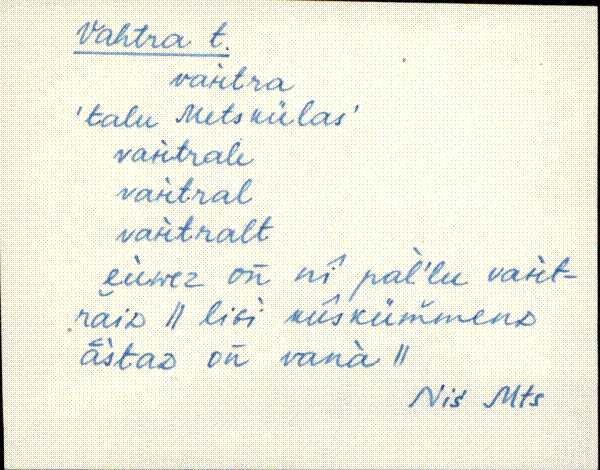 Vahtra t.
vaʜtra
'talu Metskülas'
vaʜtrale
vaʜtral
vaʜtralt
eùwez on̄ nî pàl'lu vaʜt-
rǎiᴅ // liʙì kûskümmenᴅ
ǟ̀staᴅ on̄ vanà //
Nis Mts